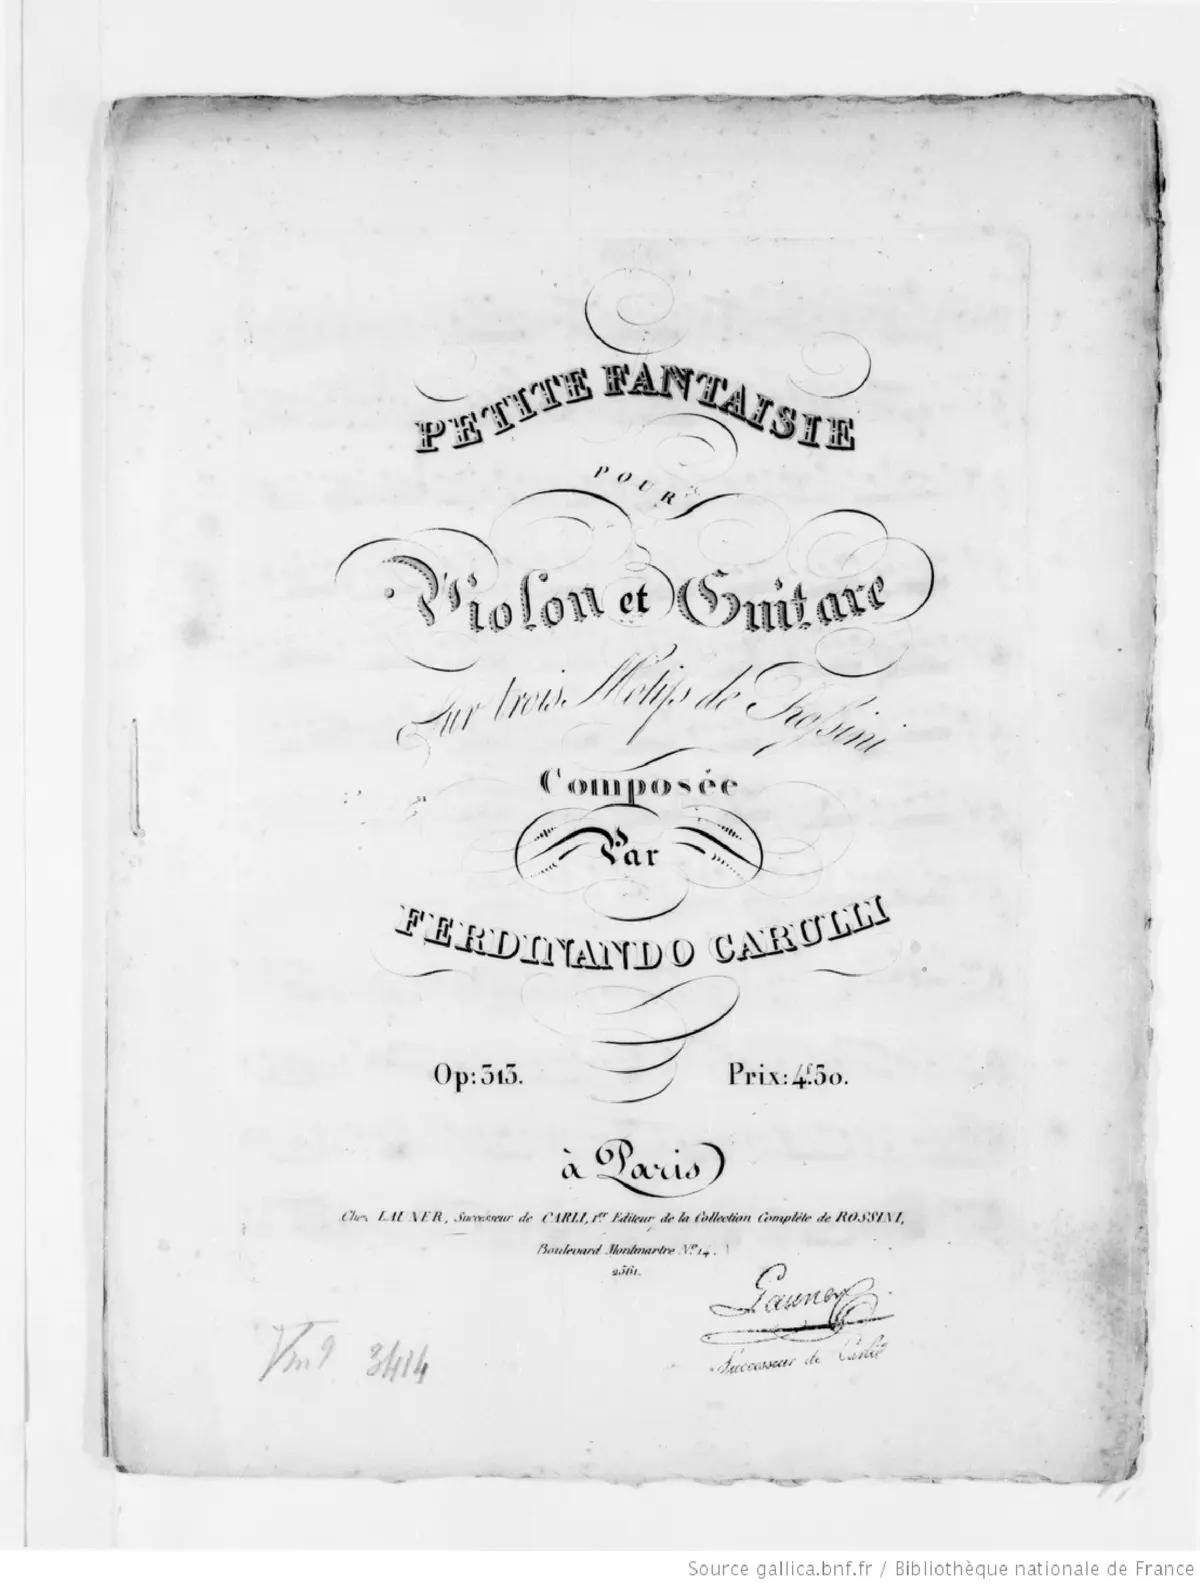 PETITE FANTAISIE
POUR
Violon et Guitare
Sur trois Motifs de Rossini
Composée
Par
FERDINANDO CARULLI
Op: 313. Prix: 4f. 50.
à Paris
Chez LAUNER, Successeur de CARLI, 1er Editeur de la Collection Complète de ROSSINI,
Boulevard Montmartre No. 14.
2361.
Launer
Successeur de Carli
Vm9 3414
Source gallica.bnf.fr / Bibliothèque nationale de France